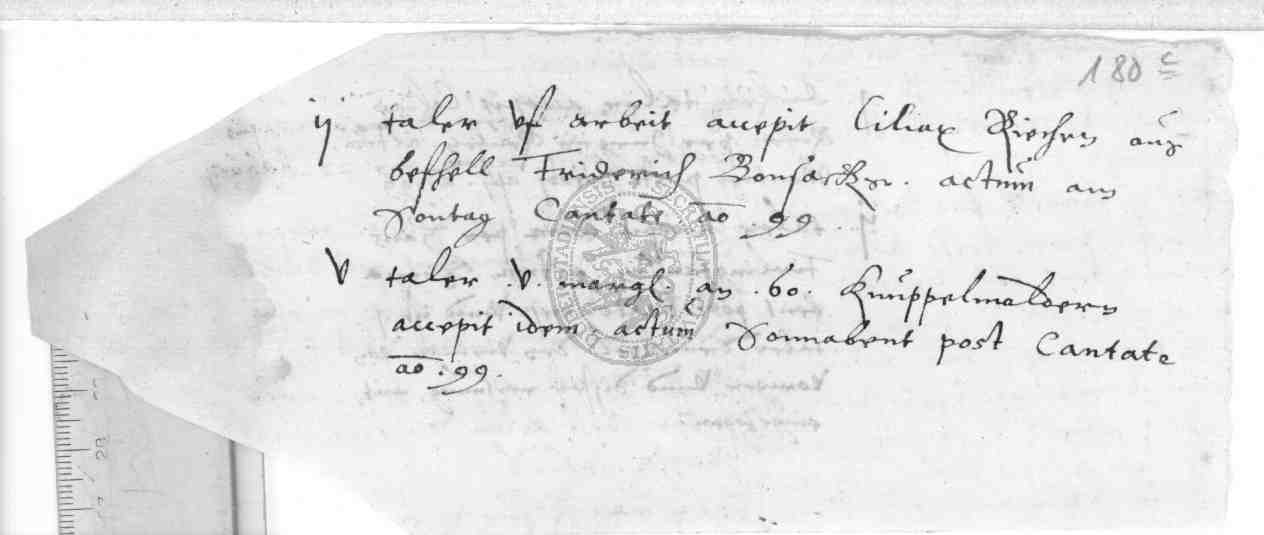 180 c
ij taler vf arbeit accepit Ciliax Riechen auß
befhell Friderich Bonsacks. actum am
Sontag Cantate ao .99.
v taler .v. margl. an .60. Knüppelmaldern
accepit idem actum Sonnabent post Cantate
ao .99.